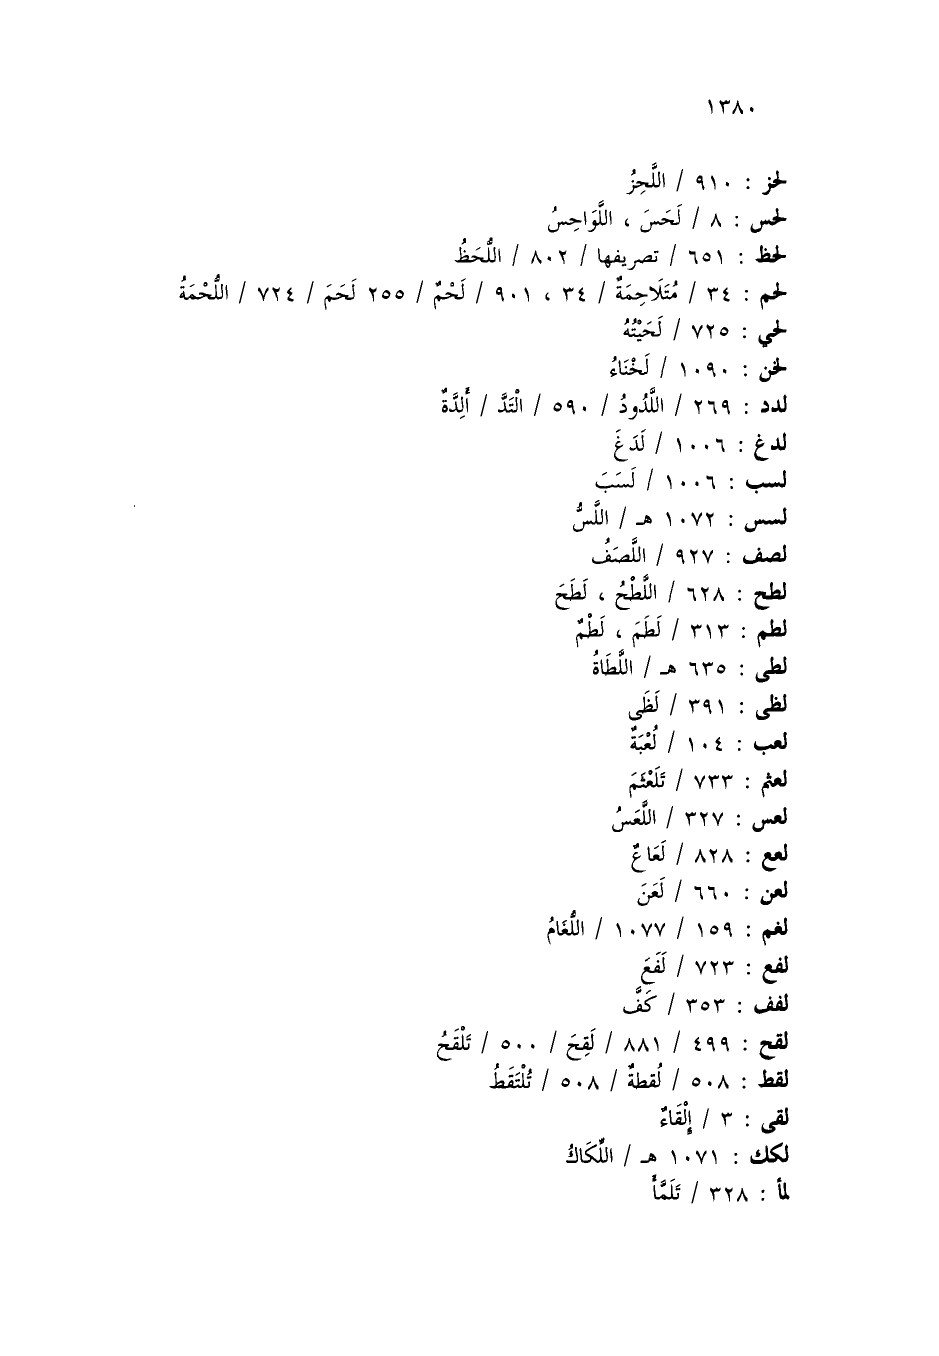 ١٣٨٠
لحز : ٩١٠ / اللَّحِزُ
لحس : ٨ / لَحَسَ ، اللَّوَاحِسُ
لحظ : ٦٥١ / تصريفها / ٨٠٢ / اللُّحَظُ
لحم : ٣٤ / مُتَلَاحِمَةٌ / ٣٤ ، ٩٠١ / لَحْمٌ / ٢٥٥ لَحَمَ / ٧٢٤ / اللُّحْمَةُ
لحي : ٧٢٥ / لَحَيْتُهُ
لخن : ١٠٩٠ / لَخْنَاءُ
لدد : ٢٦٩ / اللَّدُودُ / ٥٩٠ / الْتَدَّ / أَلِدَّةٌ
لدغ : ١٠٠٦ / لَدَغَ
لسب : ١٠٠٦ / لَسَبَ
لسس : ١٠٧٢ هـ / اللَّسُّ
لصف : ٩٢٧ / اللَّصَفُ
لطح : ٦٢٨ / اللَّطْحُ ، لَطَحَ
لطم : ٣١٣ / لَطَمَ ، لَطْمٌ
لطى : ٦٣٥ هـ / اللَّطَاةُ
لظى : ٣٩١ / لَظَى
لعب : ١٠٤ / لُعْبَةٌ
لعثم : ٧٣٣ / تَلَعْثَمَ
لعس : ٣٢٧ / اللَّعَسُ
لعع : ٨٢٨ / لَعَاعٌ
لعن : ٦٦٠ / لَعَنَ
لغم : ١٥٩ / ١٠٧٧ / اللُّغَامُ
لفع : ٧٢٣ / لَفَعَ
لفف : ٣٥٣ / كَفَّ
لقح : ٤٩٩ / ٨٨١ / لَقِحَ / ٥٠٠ / تَلْقَحُ
لقط : ٥٠٨ / لُقطةٌ / ٥٠٨ / تُلْتَقَطُ
لقى : ٣ / إِلْقَاءٌ
لكك : ١٠٧١ هـ / اللِّكَاكُ
لمأ : ٣٢٨ / تَلَمَّأَ